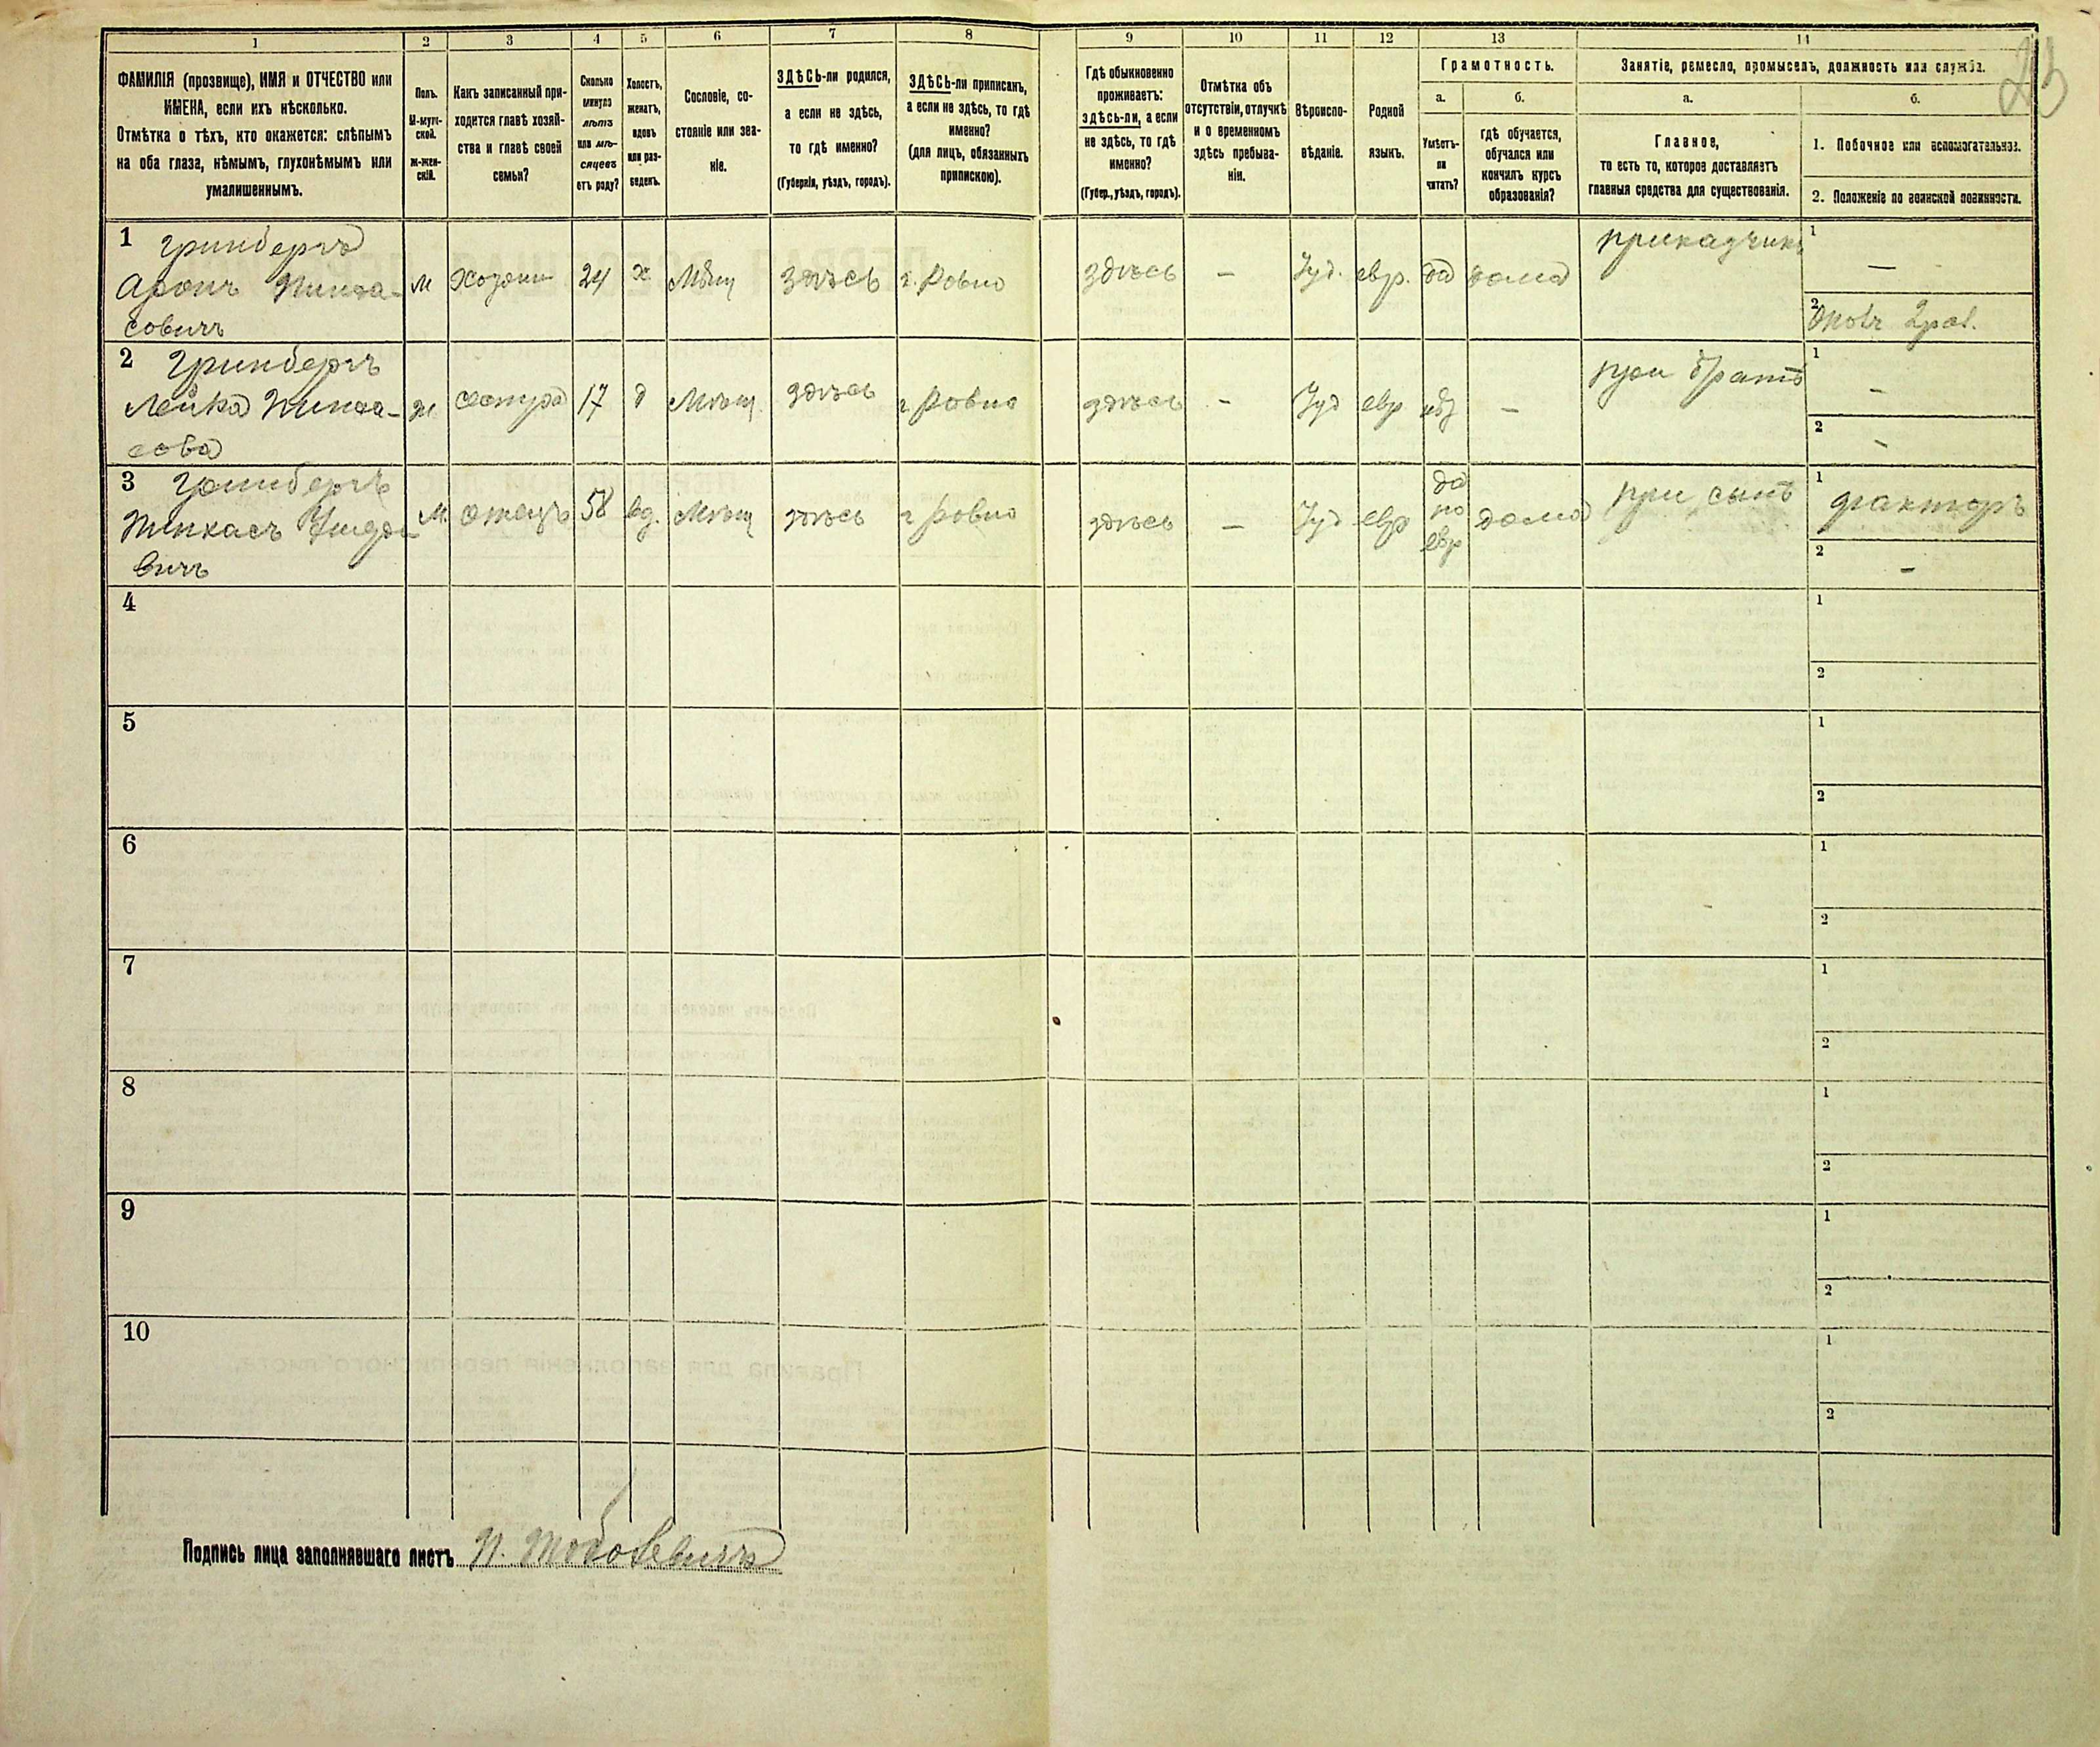 1 2 3 4 5 6 7 8 9 10 11 12 13 14
23
ФАМИЛІЯ (прозвище), ИМЯ и ОТЧЕСТВО или
ИМЕНА, если ихъ нѣсколько.
Отмѣтка о тѣхъ, кто окажется: слѣпымъ
на оба глаза, нѣмымъ, глухонѣмымъ или
умалишеннымъ.
Полъ.
М-муж-
ской.
Ж-жен-
скій.
Какъ записанный при-
ходится главѣ хозяй-
ства и главѣ своей
семьи?
Сколько
минуло
лѣтъ
или мѣ-
сяцевъ
отъ роду?
Холостъ,
женатъ,
вдовъ
или раз-
веденъ.
Сословіе, со-
стояніе или зва-
ніе.
ЗДѢСЬ-ли родился,
а если не здѣсь,
то гдѣ именно?
(Губернія, уѣздъ, городъ).
ЗДѢСЬ-ли приписанъ,
а если не здѣсь, то гдѣ
именно?
(для лицъ, обязанныхъ
припискою).
Гдѣ обыкновенно
проживаетъ:
здѣсь-ли, а если
не здѣсь, то гдѣ
именно?
(Губер., уѣздъ, городъ).
Отмѣтка объ
отсутствіи, отлучкѣ
и о временномъ
здѣсь пребыва-
ніи.
Вѣроиспо-
вѣданіе.
Родной
языкъ.
Грамотность.
а.
Умѣетъ-
ли
читать?
б.
гдѣ обучается,
обучался или
кончилъ курсъ
образованія?
Занятіе, ремесло, промыселъ, должность или служба.
а.
Главное,
то есть то, которое доставляетъ
главныя средства для существованія.
б.
1. Побочное или вспомогательное.
2. Положеніе по воинской повинности.
1 Гринбергъ
Аронъ Пинха-
совичъ
м хозяин 24 х Мѣщ здѣсь г. Ровно здѣсь — Іуд. евр. да дома приказчикъ
1 —
2
2 Гринбергъ
Лейка Пинха-
сова
ж. сестра 17 д Мѣщ. здѣсь г Ровно здѣсь - Іуд евр — при братѣ
1 -
2 -
3 Гринбергъ
Пинхасъ
вичъ
М. отецъ 58 вд. Мѣщ здѣсь г Ровно здѣсь — Іуд евр
да
по
евр
дома при сынѣ
1 факторъ
2 -
4 1
2
5 1
2
6 1
2
7 1
2
8 1
2
9 1
2
10 1
2
Подпись лица заполнявшаго листъ